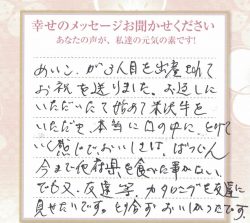 幸せのメッセージお聞かせください
あなたの声が、私達の元気の素です!
めいっこが3人目を出産されて
お祝を送りました。お返しに
いただいたて始めて米沢牛を
いただき、本当に口の中に、とけて
いく感じで、おいしさは、ばつぐん
今まで他府県を食べた事がない
でも又、友達、写、カタログを友達に
見せたいです。と特分おいしかったです